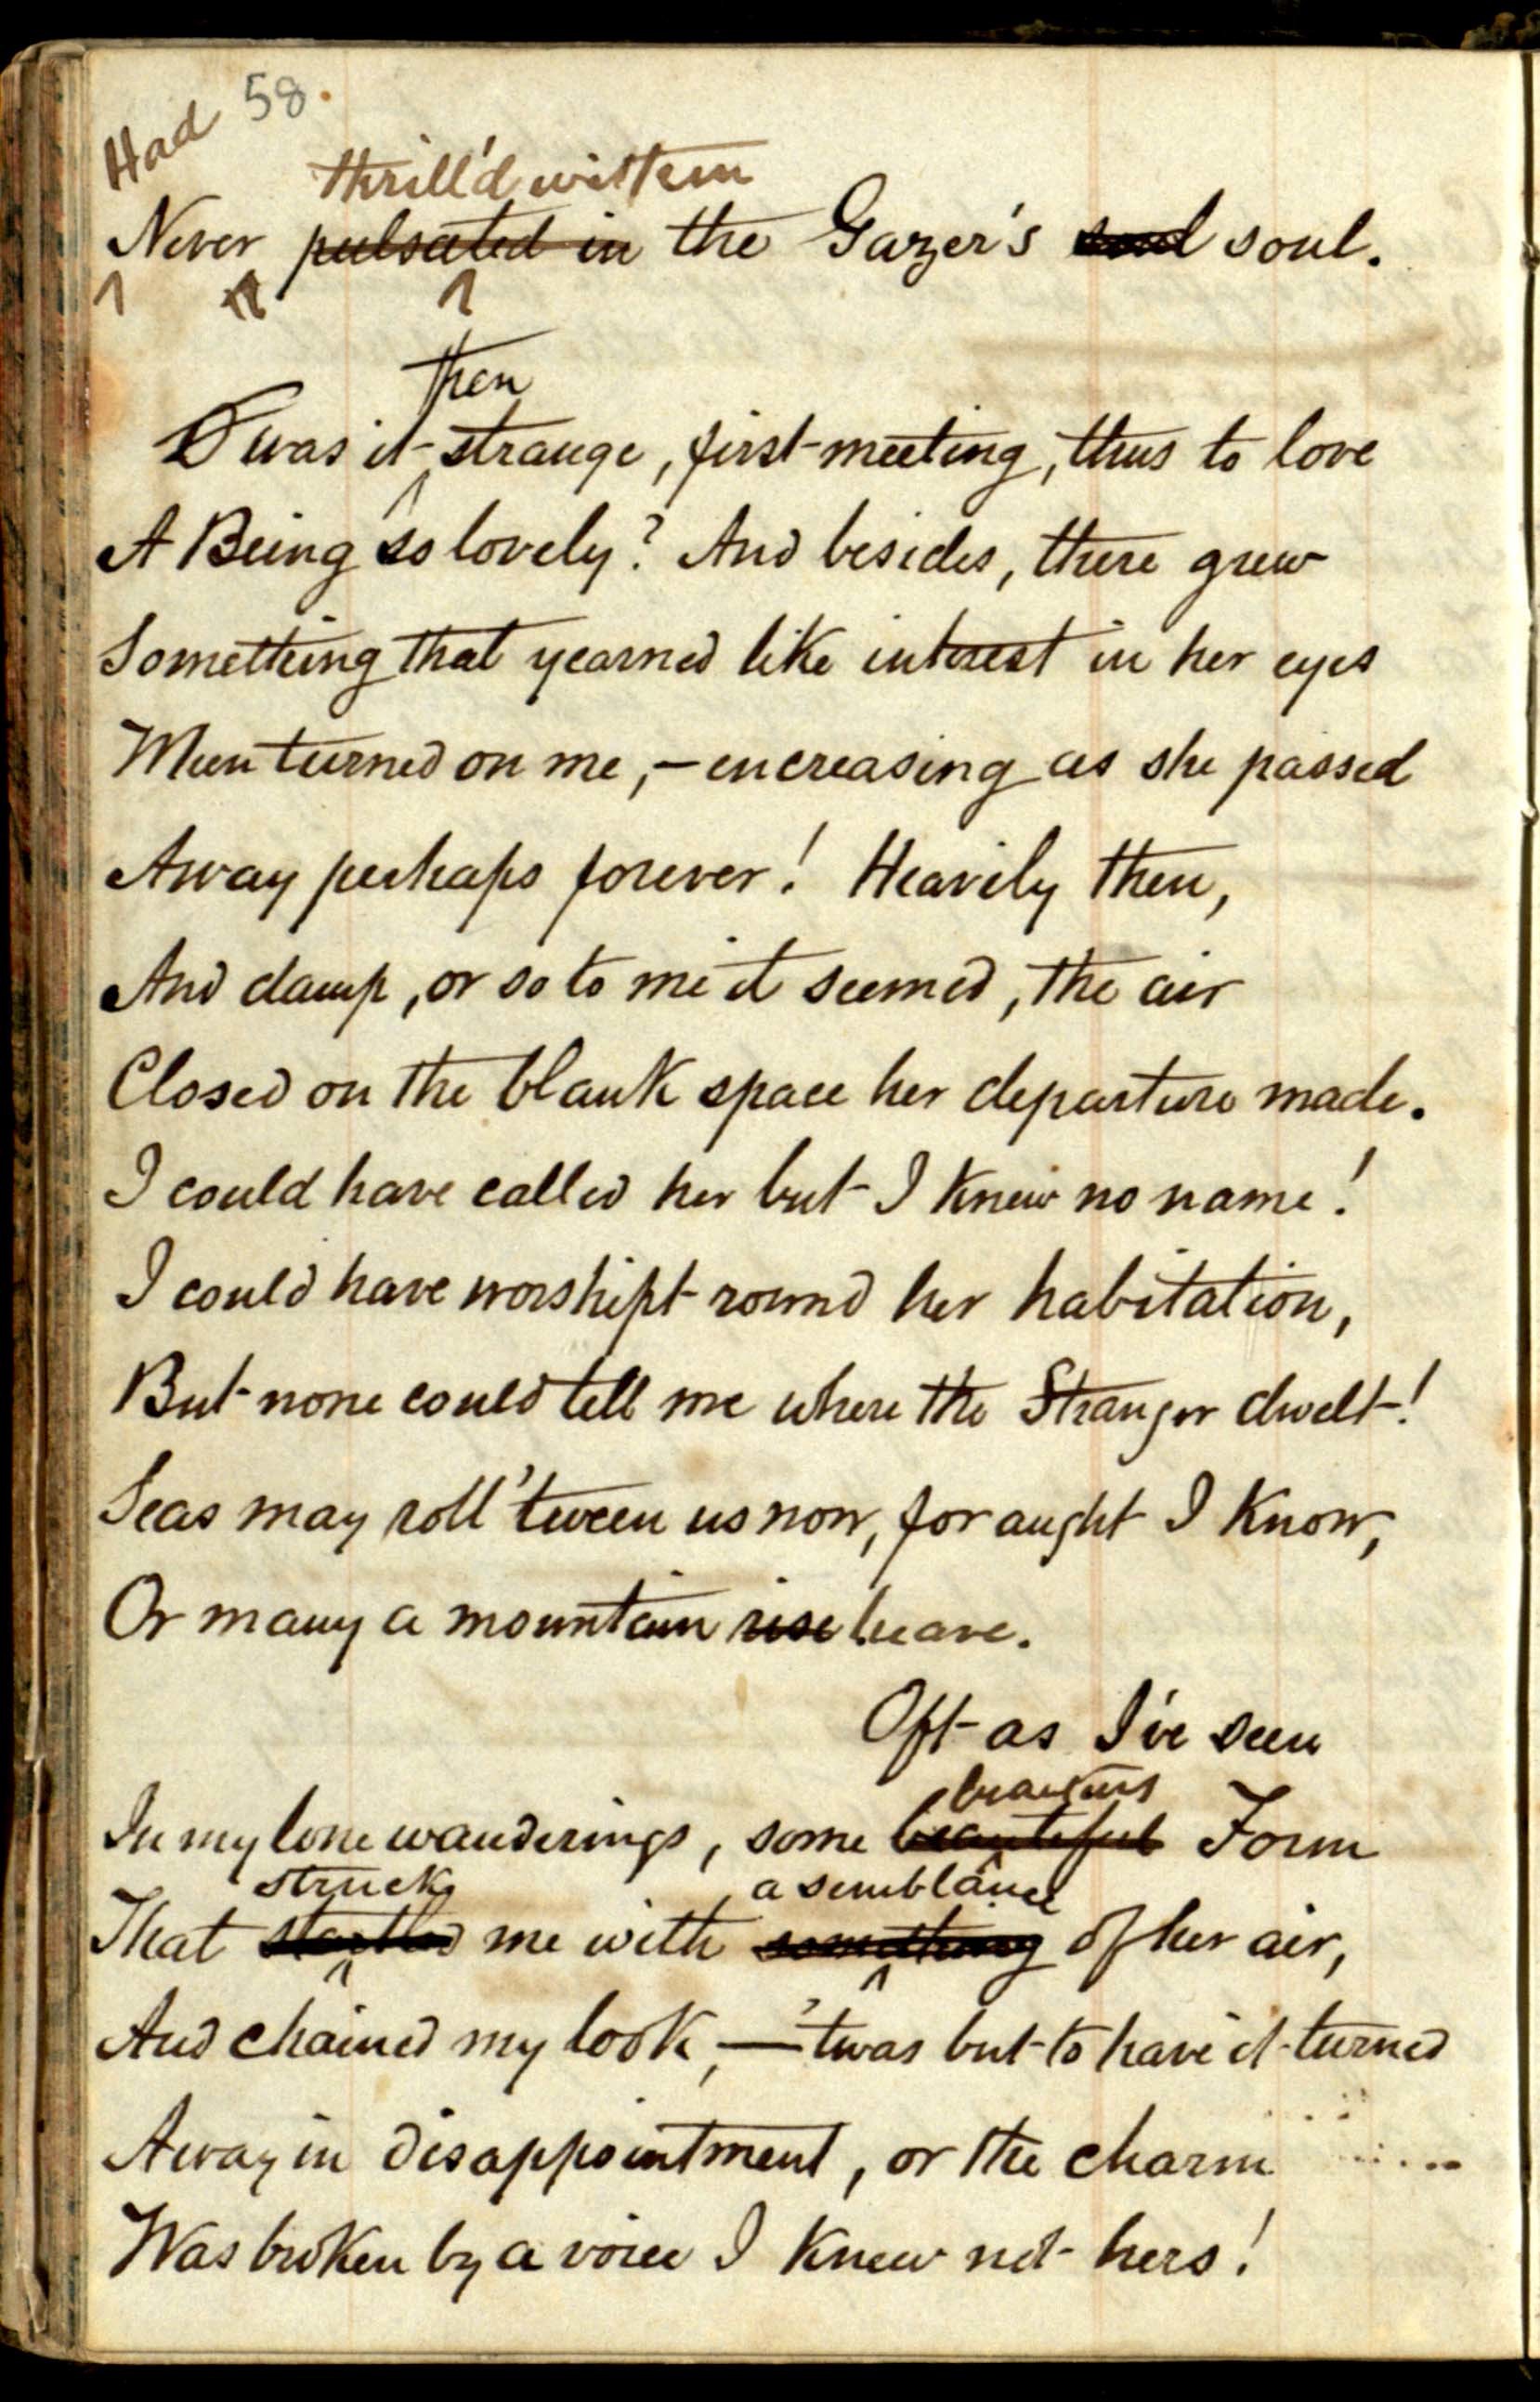 58.
Had
thrill'd within
Never pulsated in the Gazer's soul soul.
then
O was it strange, first-meeting, thus to love
A Being so lovely? And besides, there grew
Something that yearned like interest in her eyes
When turned on me, — encreasing as she passed
Away perhaps forever! Heavily then,
And damp, or so to me it seemed, the air
Closed on the blank space her departure made.
I could have called her but I knew no name!
I could have worshipt round her habitation,
But none could tell me where the Stranger dwelt!
Seas may roll 'tween us now, for aught I know,
Or many a mountain rise heave.
Oft as I've seen
beauteous
In my lone wanderings, some beautiful Form
struck a semblance
That startled me with something of her air,
And chained my look, — 'twas but to have it turned
Away in disappointment, or the charm
Was broken by a voice I knew not hers!